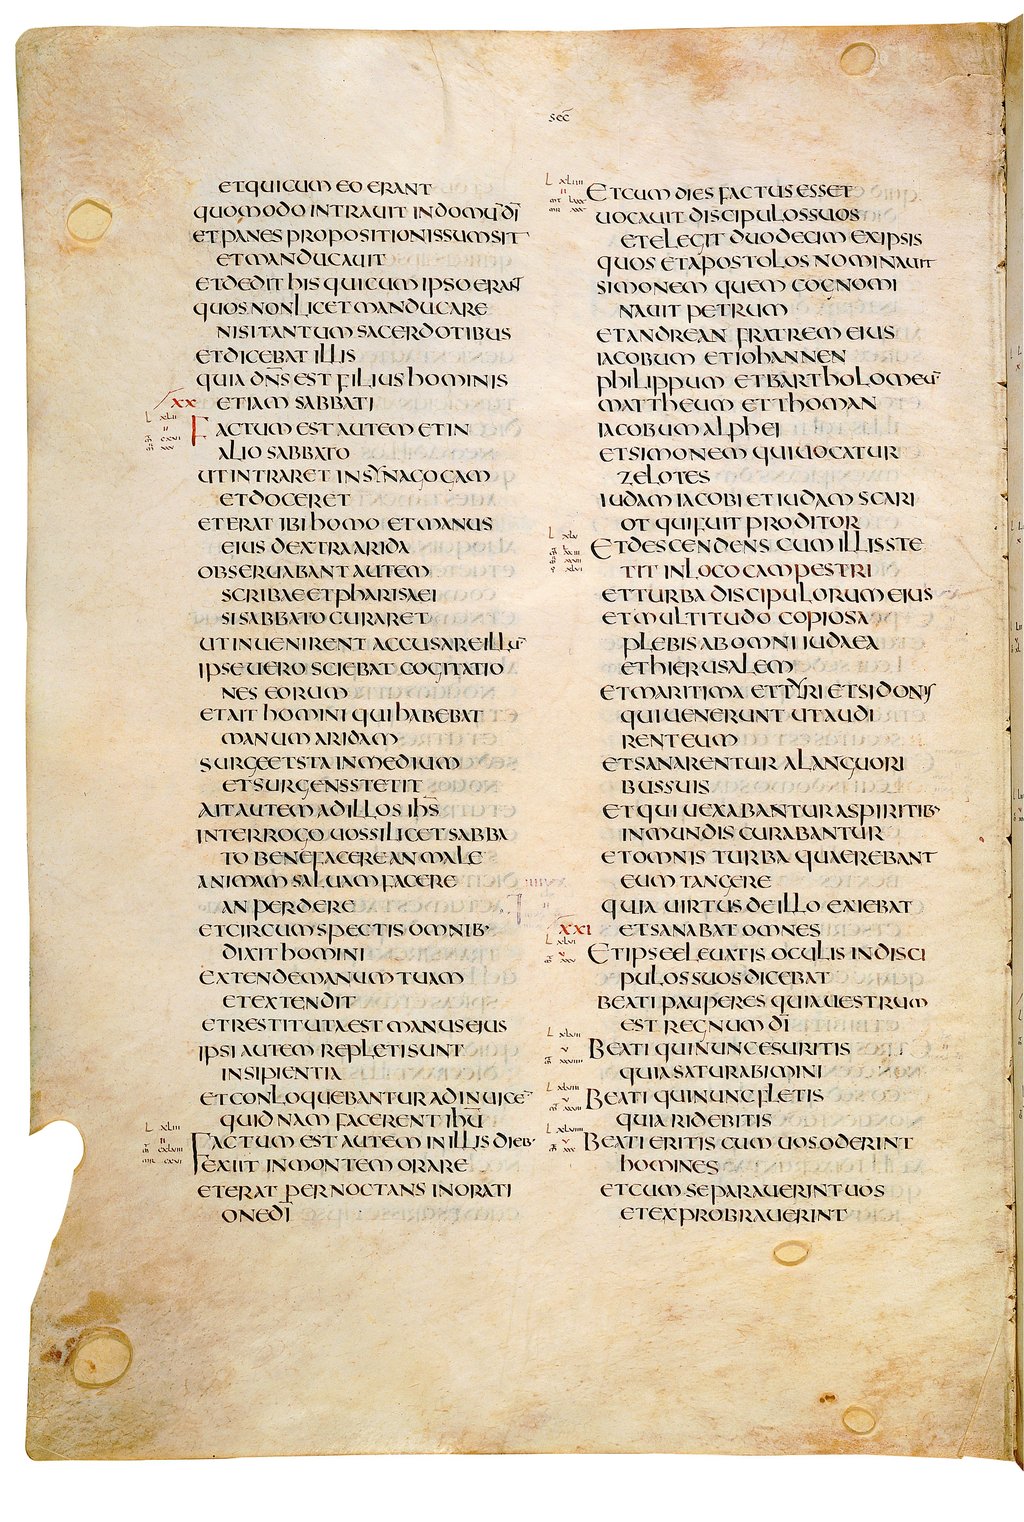 SEC̄
ET QUI CUM EO ERANT
QUOMODO INTRAUIT IN DOMŪ DĪ
ET PANES PROPOSITIONIS SUMSIT
ET MANDUCAUIT
ET DEDIT HIS QUI CUM IPSO ERANT
QUOS NON LICET MANDUCARE
NISI TANTUM SACERDOTIBUS
ET DICEBAT ILLIS
QUIA DN̄S EST FILIUS HOMINIS
XX ETIAM SABBATI
FACTUM EST AUTEM ET IN
ALIO SABBATO
UT INTRARET IN SYNAGOGAM
ET DOCERET
ET ERAT IBI HOMO ET MANUS
EIUS DEXTRA ARIDA
OBSERUABANT AUTEM
SCRIBAE ET PHARISAEI
SI SABBATO CURARET
UT INUENIRENT ACCUSARE ILLŪ
IPSE UERO SCIEBAT COGITATIO
NES EORUM
ET AIT HOMINI QUI HABEBAT
MANUM ARIDAM
SURGE ET STA IN MEDIUM
ET SURGENS STETIT
AIT AUTEM AD ILLOS IH̄S
INTERROGO UOS SI LICET SABBA
TO BENEFACERE AN MALE
ANIMAM SALUAM FACERE
AN PERDERE
ET CIRCUMSPECTIS OMNIB·
DIXIT HOMINI
EXTENDE MANUM TUAM
ET EXTENDIT
ET RESTITUTA EST MANUS EIUS
IPSI AUTEM REPLETI SUNT
INSIPIENTIA
ET CONLOQUEBANTUR AD INUICĒ
QUIDNAM FACERENT IHŪ
L XLIII
FACTUM EST AUTEM IN ILLIS DIEB·
EXIIT IN MONTEM ORARE
ET ERAT PERNOCTANS IN ORATI
ONE DĪ
L XLIIII
ET CUM DIES FACTUS ESSET
UOCAUIT DISCIPULOS SUOS
ET ELEGIT DUODECIM EX IPSIS
QUOS ET APOSTOLOS NOMINAUIT
SIMONEM QUEM COGNOMI
NAUIT PETRUM
ET ANDREAN FRATREM EIUS
IACOBUM ET IOHANNEN
PHILIPPUM ET BARTHOLOMEŪ
MATTHEUM ET THOMAN
IACOBUM ALPHEI
ET SIMONEM QUI UOCATUR
ZELOTES
IUDAM IACOBI ET IUDAM SCARI
OT QUI FUIT PRODITOR
L XLV
ET DESCENDENS CUM ILLIS STE
TIT IN LOCO CAMPESTRI
ET TURBA DISCIPULORUM EIUS
ET MULTITUDO COPIOSA
PLEBIS AB OMNI IUDAEA
ET HIERUSALEM
ET MARITIMA ET TYRI ET SIDONIS
QUI UENERUNT UT AUDI
RENT EUM
ET SANARENTUR A LANGUORI
BUS SUIS
ET QUI UEXABANTUR A SPIRITIB·
INMUNDIS CURABANTUR
ET OMNIS TURBA QUAEREBANT
EUM TANGERE
QUIA UIRTUS DE ILLO EXIEBAT
XXI ET SANABAT OMNES
L XLVI
ET IPSE ELEUATIS OCULIS IN DISCI
PULOS SUOS DICEBAT
BEATI PAUPERES QUIA UESTRUM
EST REGNUM DĪ
L XLVII
BEATI QUI NUNC ESURITIS
QUIA SATURABIMINI
L XLVIII
BEATI QUI NUNC FLETIS
QUIA RIDEBITIS
L XLVIIII
BEATI ERITIS CUM UOS ODERINT
HOMINES
ET CUM SEPARAUERINT UOS
ET EXPROBRAUERINT